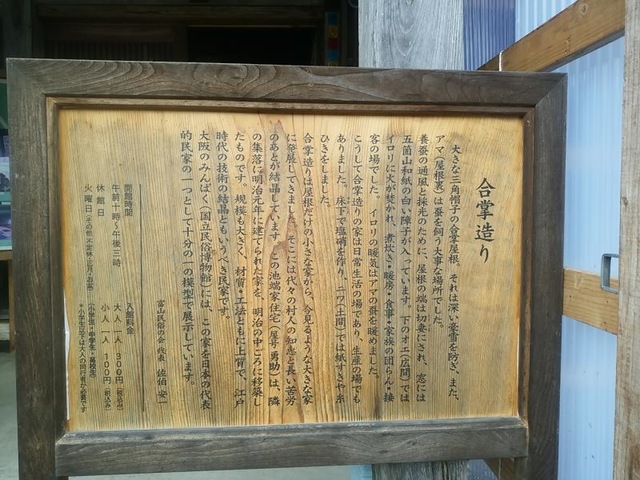 合掌造り
大きな三角帽子の合掌屋根、それは深い豪雪を防ぎ、また、
アマ(屋根裏)は蚕を飼う大事な場所でした。
養蚕の通風と採光のために、屋根の端は切妻にされ、窓には
五箇山和紙の白い障子が入っています。下のオエ(広間)では
イロリに火が焚かれ、煮炊き・暖房・食事・家族の団らん・接
客の場でした。イロリの暖気はアマの蚕を暖めました。
こうして合掌造りの家は日常生活の場であり、生産の場でも
ありました。床下で塩硝を作り、ニワ(土間)では紙すきや糸
ひきをしました。
合掌造りは屋根だけの小さな家から、今見るような大きな家
に発展してきました。そこには代々の村人の知恵と長い苦労
のあとが結晶しています。この池端家住宅(屋号 勇助)は、隣
の集落に明治元年に建てられた家を、明治の中ごろに移築し
たものです。規模も大きく、材質・工法ともに上質で、江戸
時代の技術の結晶ともいうべき民家です。
大阪のみんぱく(国立民俗博物館)には、この家を日本の代表
的民家の一つとして十分の一の模型で展示しています。
富山民俗の会 代表 佐伯 安一
開館時間
午前十時~午後三時
休館日
火曜日
入館料金
大人 一人 300円(税込み)
小人 一人 100円(税込み)
(小学生・中学生・高校生)